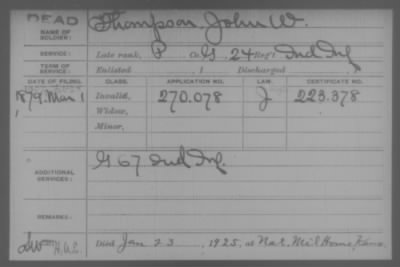 DEAD
NAME OF SOLDIER: Thompson, John W.
SERVICE: Late rank, P Co. G, 24 Reg't Ind Inf
TERM OF SERVICE: Enlisted , 1 Discharged
DATE OF FILING. CLASS. APPLICATION NO. LAW. CERTIFICATE NO.
1879. Mar 1 Invalid, 270.078 J 223.378
Widow,
Minor,
ADDITIONAL SERVICES: G 67 Ind Inf.
REMARKS:
Died Jan 23, 1925, at Nat. Mil Home, Kans.